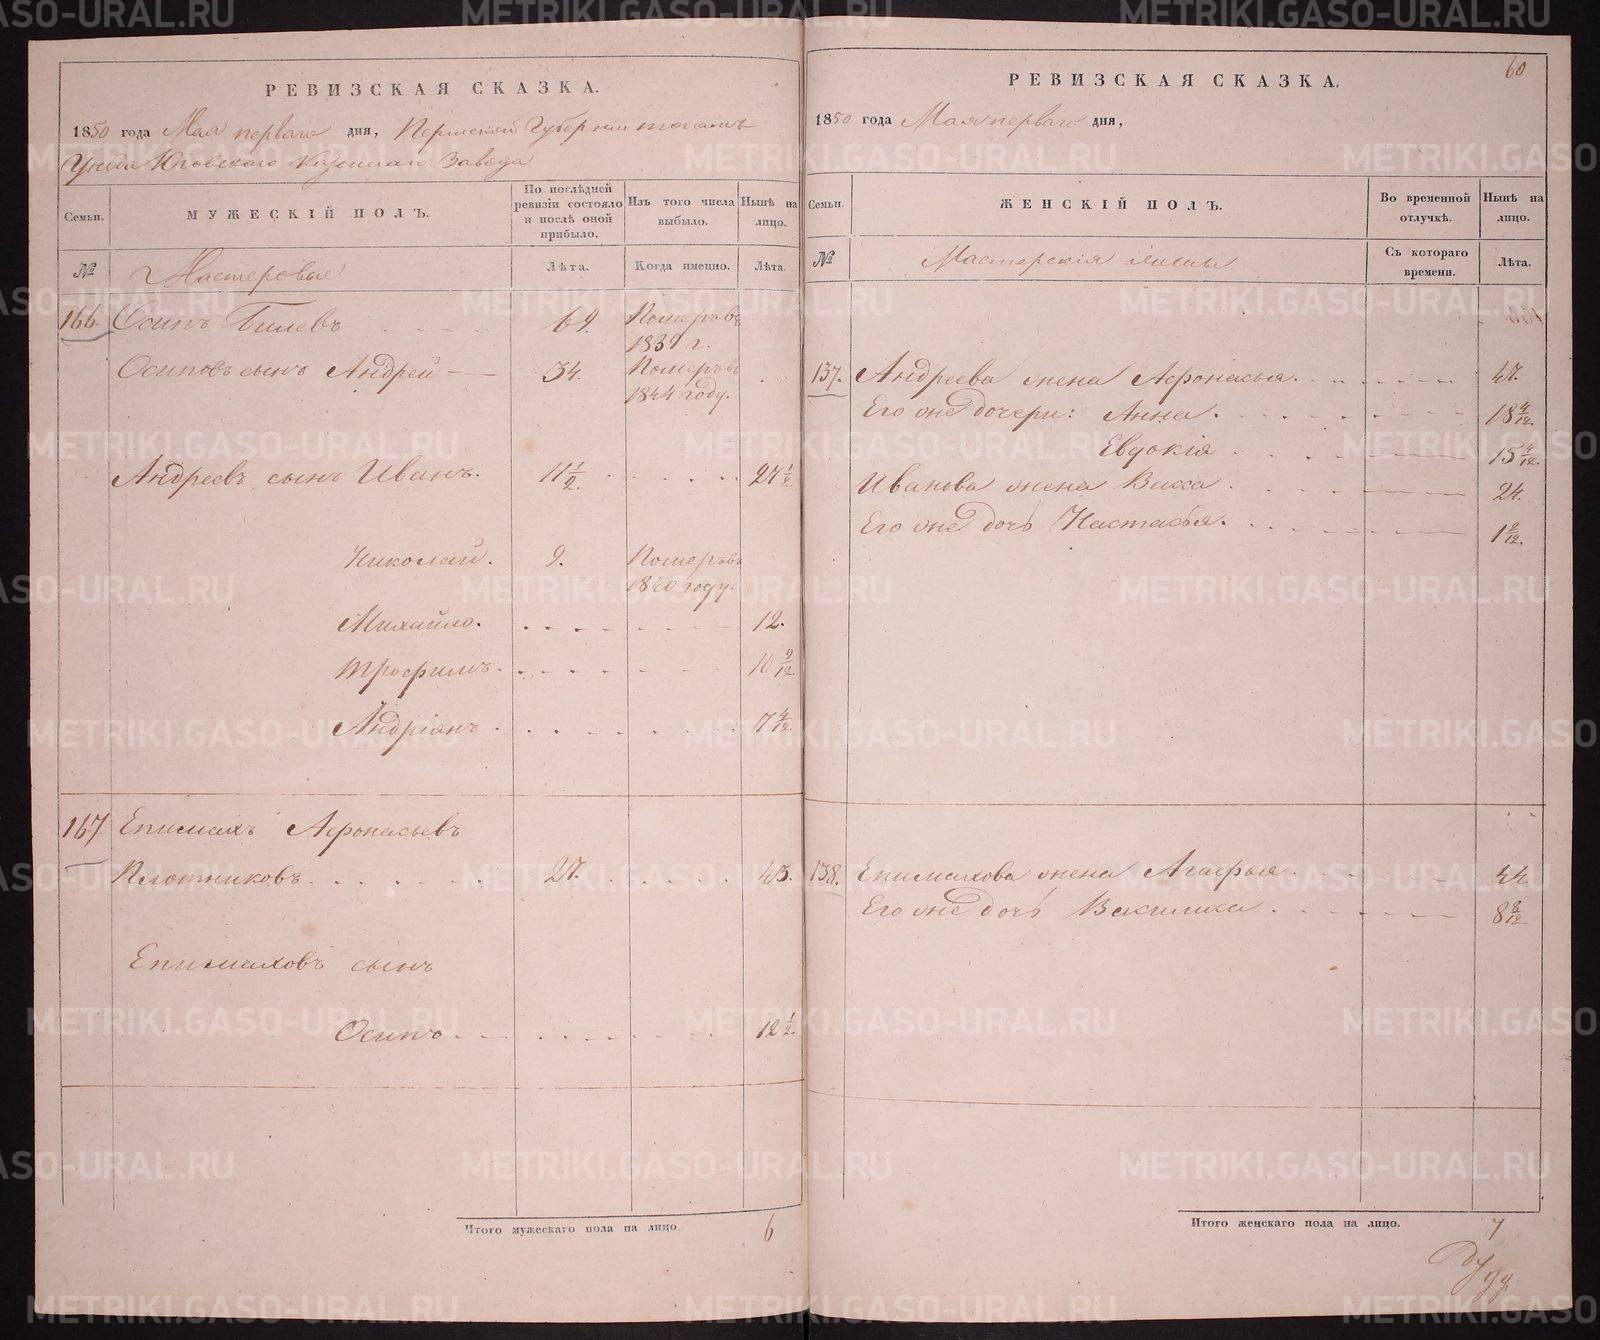 РЕВИЗСКАЯ СКАЗКА.
1850 года Мая перваго дня, Пермской Губернии тогожъ
Уезда Юговскаго Казеннаго Завода
Семьи.
МУЖЕСКІЙ ПОЛЪ.
По послѣдней ревизіи состояло и послѣ оной прибыло.
Изъ того числа выбыло.
Нынѣ на лицо.
№
Мастеровые
Лѣта.
Когда именно.
Лѣта.
166. Осипъ Гилевъ 69. Померъ въ 1839 г.
Осиповъ сынъ Андрей 34. Померъ въ 1844 году.
Андреевъ сынъ Иванъ. 11 1/2 27 1/2
Николай. 9. Померъ въ 1840 году.
Михайло. 12.
Трофимъ. 10 9/12
Андріянъ 7 4/12.
167. Епимахъ Афонасьевъ
Плотниковъ 27. 43.
Епимаховъ сынъ
Осипъ 12 1/2
Итого мужескаго пола на лицо. 6
60
РЕВИЗСКАЯ СКАЗКА.
1850 года Мая перваго дня,
Семьи.
ЖЕНСКІЙ ПОЛЪ.
Во временной отлучкѣ.
Нынѣ на лицо.
№
Мастерскія жены
Съ котораго времени.
Лѣта.
137. Андреева жена Афонасья 47.
Его же дочери: Анна 18 4/12.
Евдокія 15 4/12.
Иванова жена Васса 24.
Его же дочь Настасья. 1 8/12.
138. Епимахова жена Агафья 44
Его же дочь Василиса 8 8/12
Итого женскаго пола на лицо. 7
METRIKI.GASO-URAL.RU